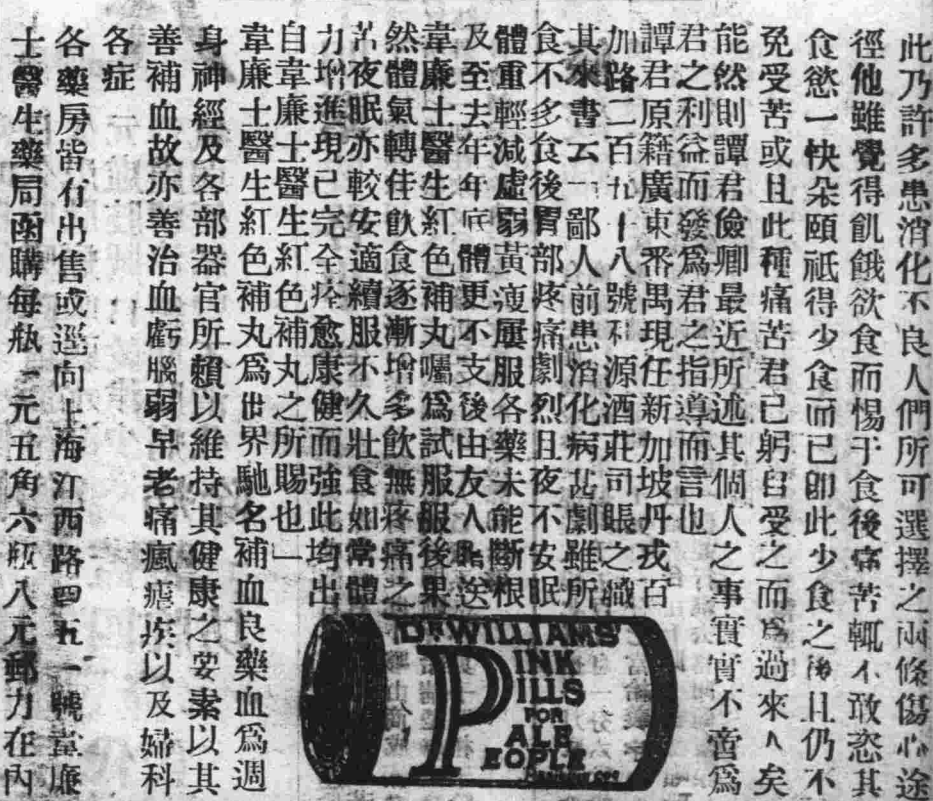 此乃許多患消化不良人們所可選擇之兩條傷心途
徑他雖覺得飢餓欲食而惕于食後痛苦輒不敢恣其
食慾一快朵頤祇得少食而已卽此少食之後且仍不
免受苦或且此種痛苦君已躬自受之而爲過來人矣
能然則譚君儉卿最近所述其個人之事實實不啻爲
君之利益而發爲君之指導而言也
譚君原籍廣東番禺現任新加坡丹戎百
加路二百九十八號和源酒莊司賬之職
其來書云「鄙人前患消化病甚劇雖所
食不多食後胃部疼痛劇烈且夜不安眠
體重輕減虛弱黃瘦屢服各藥未能斷根
及至去年年底體更不支後由友人贈送
韋廉士醫生紅色補丸囑爲試服服後果
然體氣轉佳飲食逐漸增多飲無疼痛之
苦夜眠亦較安適續服不久壯食如常體
力增進現已完全痊愈康健而強此均出
自韋廉士醫生紅色補丸之所賜也」
韋廉士醫生紅色補丸爲世界馳名補血良藥血爲週
身神經及各部器官所賴以維持其健康之要素以其
善補血故亦善治血虧腦弱早老痛瘋瘧疾以及婦科
各症
各藥房皆有出售或逕向上海江西路四五一號韋廉
士醫生藥局函購每瓶一元五角六瓶八元郵力在內
DR WILLIAMS'
PINK
PILLS
FOR
PALE
PEOPLE